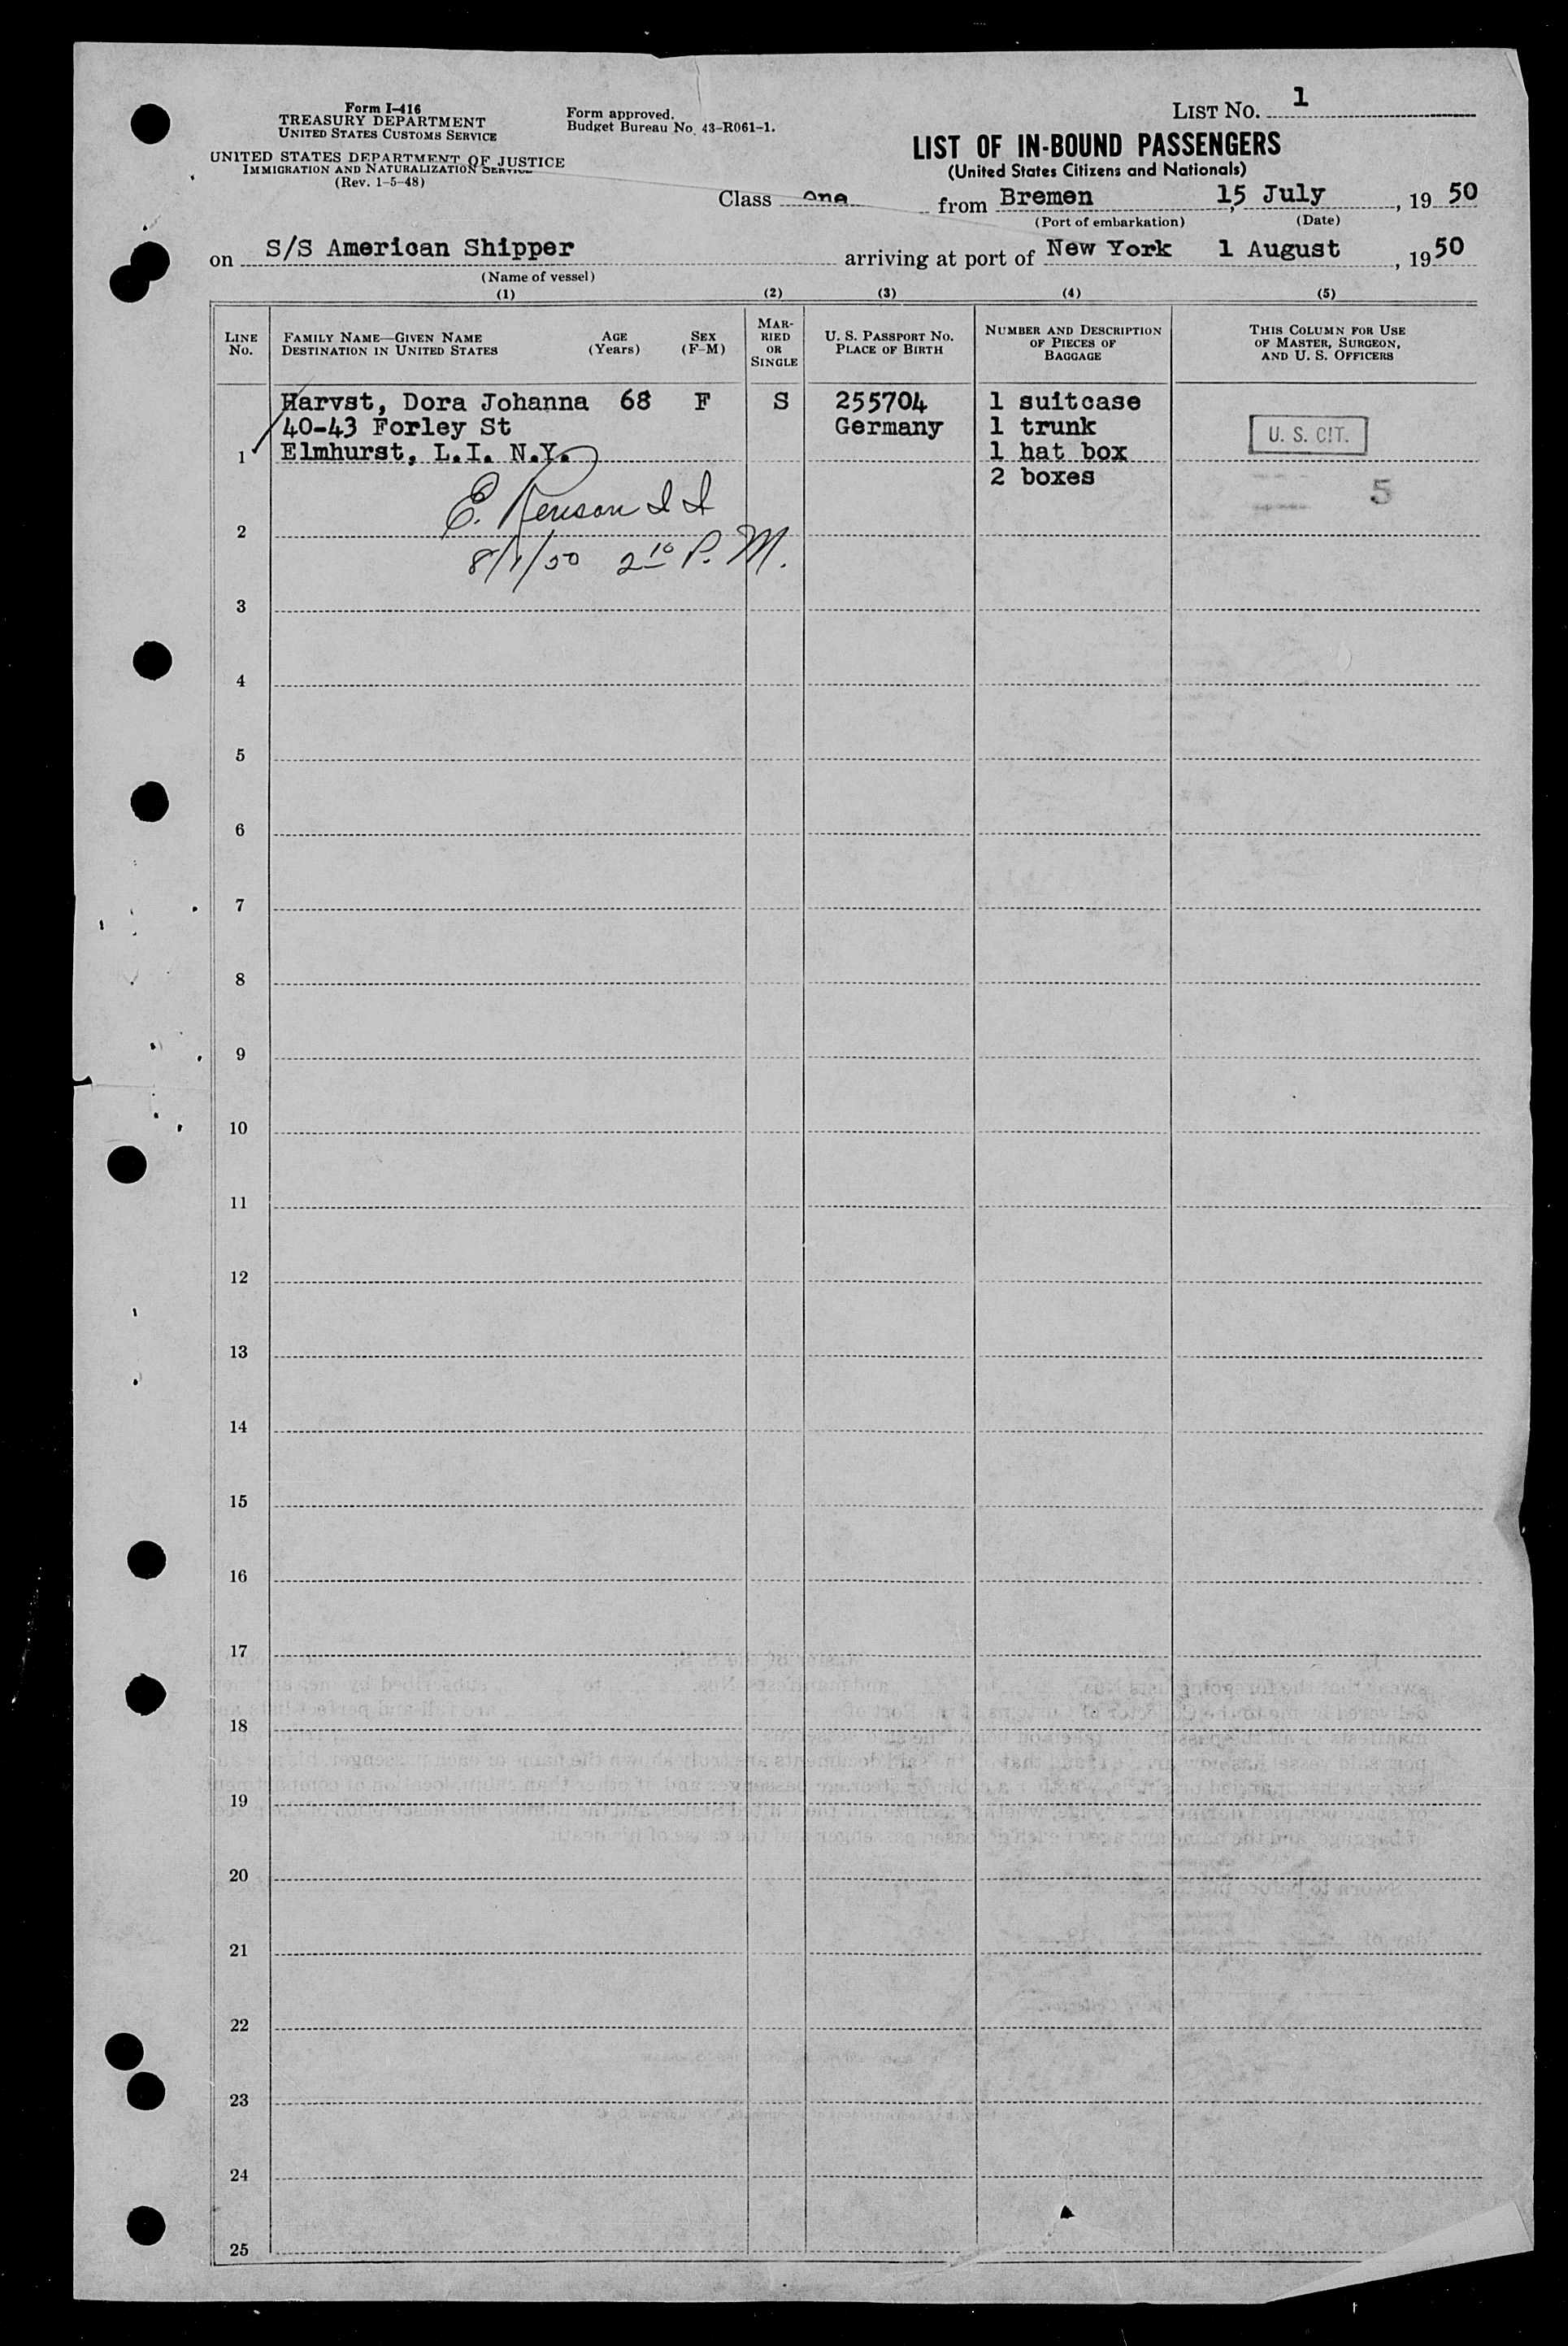 Form I-416
TREASURY DEPARTMENT
UNITED STATES CUSTOMS SERVICE
UNITED STATES DEPARTMENT OF JUSTICE
IMMIGRATION AND NATURALIZATION SERVICE
(Rev. 1-5-48)
Form approved.
Budget Bureau No. 43-R061-1.
LIST No. 1
LIST OF IN-BOUND PASSENGERS
(United States Citizens and Nationals)
Class One from Bremen 15 July, 1950
(Port of embarkation) (Date)
on S/S American Shipper arriving at port of New York 1 August, 1950
(Name of vessel)
(1) (2) (3) (4) (5)
LINE No.
FAMILY NAME—GIVEN NAME
DESTINATION IN UNITED STATES
AGE
(Years)
SEX
(F-M)
MAR-
RIED
OR
SINGLE
U. S. PASSPORT No.
PLACE OF BIRTH
NUMBER AND DESCRIPTION
OF PIECES OF
BAGGAGE
THIS COLUMN FOR USE
OF MASTER, SURGEON,
AND U. S. OFFICERS
Harvst, Dora Johanna 68 F S 255704 1 suitcase
40-43 Forley St Germany 1 trunk
U. S. CIT.
1 Elmhurst, L.I. N.Y. 1 hat box
2 boxes
5
E.
2
8/1/50 2 10 P.M.
3
4
5
6
7
8
9
10
11
12
13
14
15
16
17
18
19
20
21
22
23
24
25